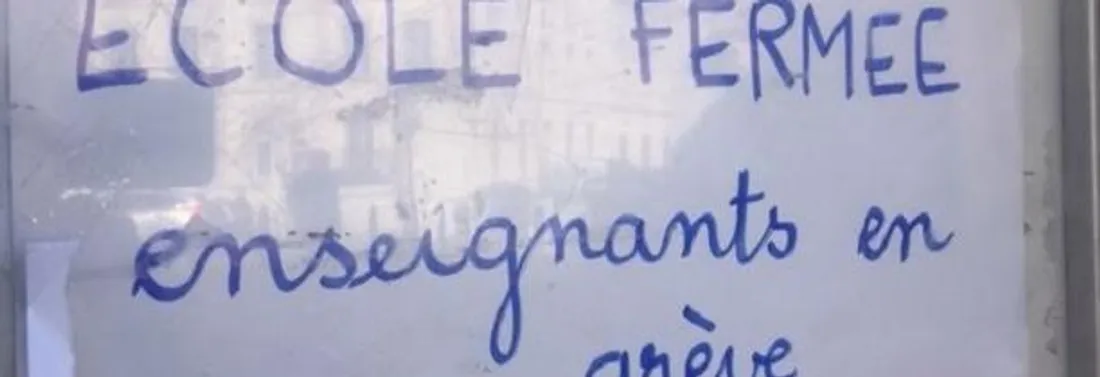 ECOLE FERMEE
enseignants en
grève